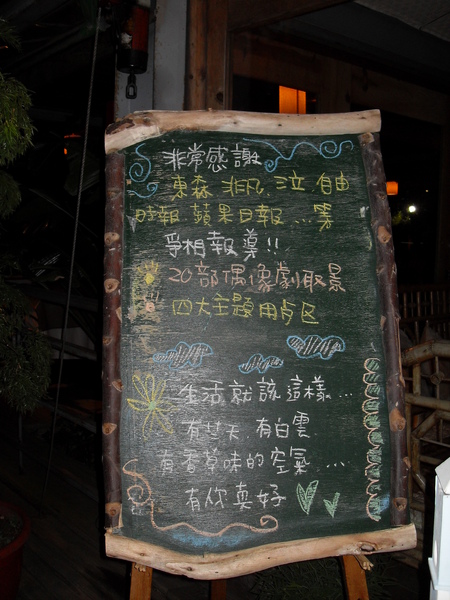 非常感謝
東森 非凡 三立 自由
時報 蘋果日報...等
爭相報導!!
20部偶像劇取景
四大主題用餐区
生活就該這樣...
有藍天.有白雲
有香草味的空氣....
有你真好